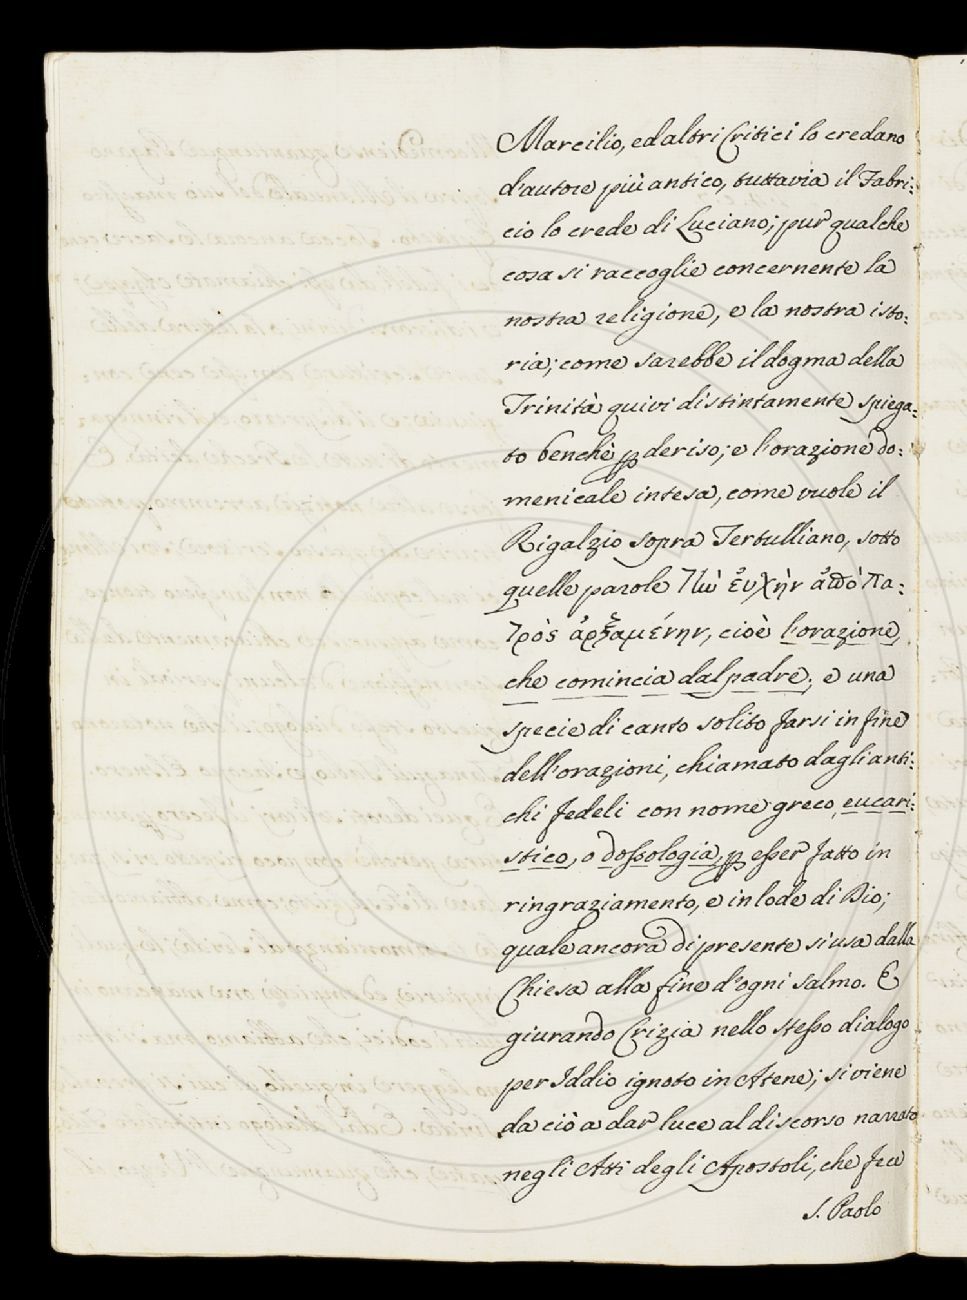 Marcilio, ed altri Critici lo credano
d'autore più antico, tuttavia il Fabri:
cio lo crede di Luciano; pur qualche
cosa si raccoglie concernente la
nostra religione, e la nostra isto:
ria; come sarebbe il dogma della
Trinità quivi distintamente spiega:
to benchè p deriso; e l'orazione do:
menicale intesa, come vuole il
Rigalzio sopra Tertulliano, sotto
quelle parole τὼ ἐυχὴν ἀπὸ πα:
τρὸς ἀρξαμένην, cioè l'orazione,
che comincia dal padre; e una
specie di canto solito farsi in fine
dell'orazioni, chiamato dagli anti:
chi fedeli con nome greco eucari:
stico, o dossologia, p esser fatto in
ringraziamento, e in lode di Dio;
quale ancora di presente si usa dalla
Chiesa alla fine d'ogni salmo. E
giurando Crizia nello stesso dialogo
per Iddio ignoto in Atene; si viene
da ciò a dar luce al discorso narrato
negli Atti degli Apostoli, che fece
S. Paolo